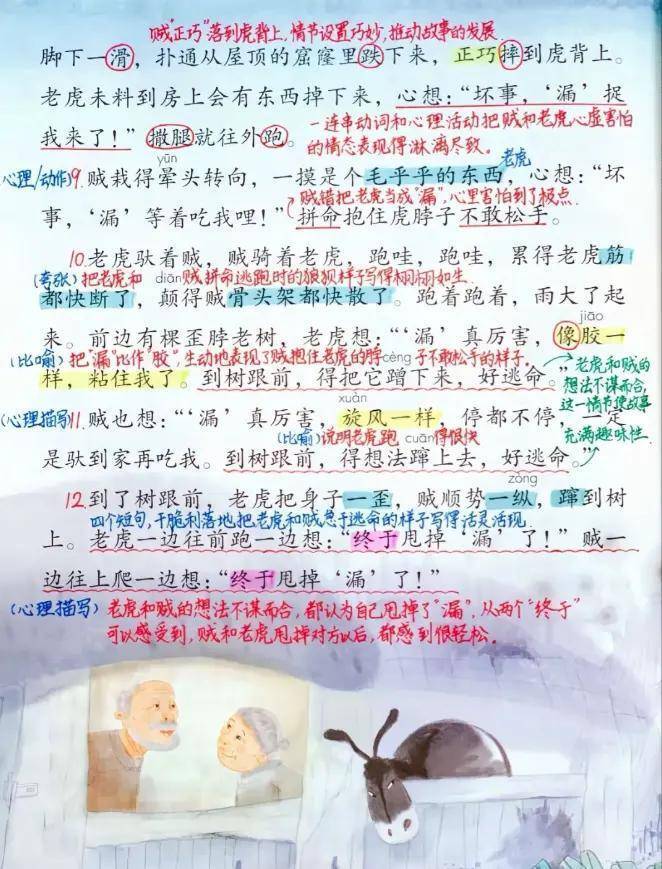 贼“正巧”落到虎背上,情节设置巧妙,推动故事的发展.
脚下一滑，扑通从屋顶的窟窿里跌下来，正巧摔到虎背上。
老虎未料到房上会有东西掉下来，心想：“坏事，‘漏’捉
我来了！”撒腿就往外跑。
一连串动词和心理活动把贼和老虎心虚害怕
的情态表现得淋漓尽致。
yūn
老虎
心理/动作
9.贼栽得晕头转向，一摸是个毛乎乎的东西，心想：“坏
贼错把老虎当成“漏”,心里害怕到了极点.
事，‘漏’等着吃我哩！”拼命抱住虎脖子不敢松手。
10.老虎驮着贼，贼骑着老虎，跑哇，跑哇，累得老虎筋
(夸张)把老虎和 diān 贼拼命逃跑时的狼狈样子写得栩栩如生.
都快断了，颠得贼骨头架都快散了。跑着跑着，雨大了起
jiāo
来。前边有棵歪脖老树，老虎想：“‘漏’真厉害，像胶一
(比喻)把“漏”比作“胶”,生动地表现了贼抱住老虎的脖 cèng 子不敢松手的样子.
样，粘住我了。到树跟前，得把它蹭下来，好逃命。”
老虎和贼的
想法不谋而合,
这一情节使故事
充满趣味性.
xuàn
(心理描写)
11.贼也想：“‘漏’真厉害，旋风一样，停都不停，一定
(比喻)说明老虎跑 cuān 得很快
是驮到家再吃我。到树跟前，得想法蹿上去，好逃命。”
zòng
12.到了树跟前，老虎把身子一歪，贼顺势一纵，蹿到树
四个短句,干脆利落地把老虎和贼急于逃命的样子写得活灵活现.
上。老虎一边往前跑一边想：“终于甩掉‘漏’了！”贼一
边往上爬一边想：“终于甩掉‘漏’了！”
(心理描写)老虎和贼的想法不谋而合,都认为自己甩掉了“漏”,从两个“终于”
可以感受到,贼和老虎甩掉对方以后,都感到很轻松.